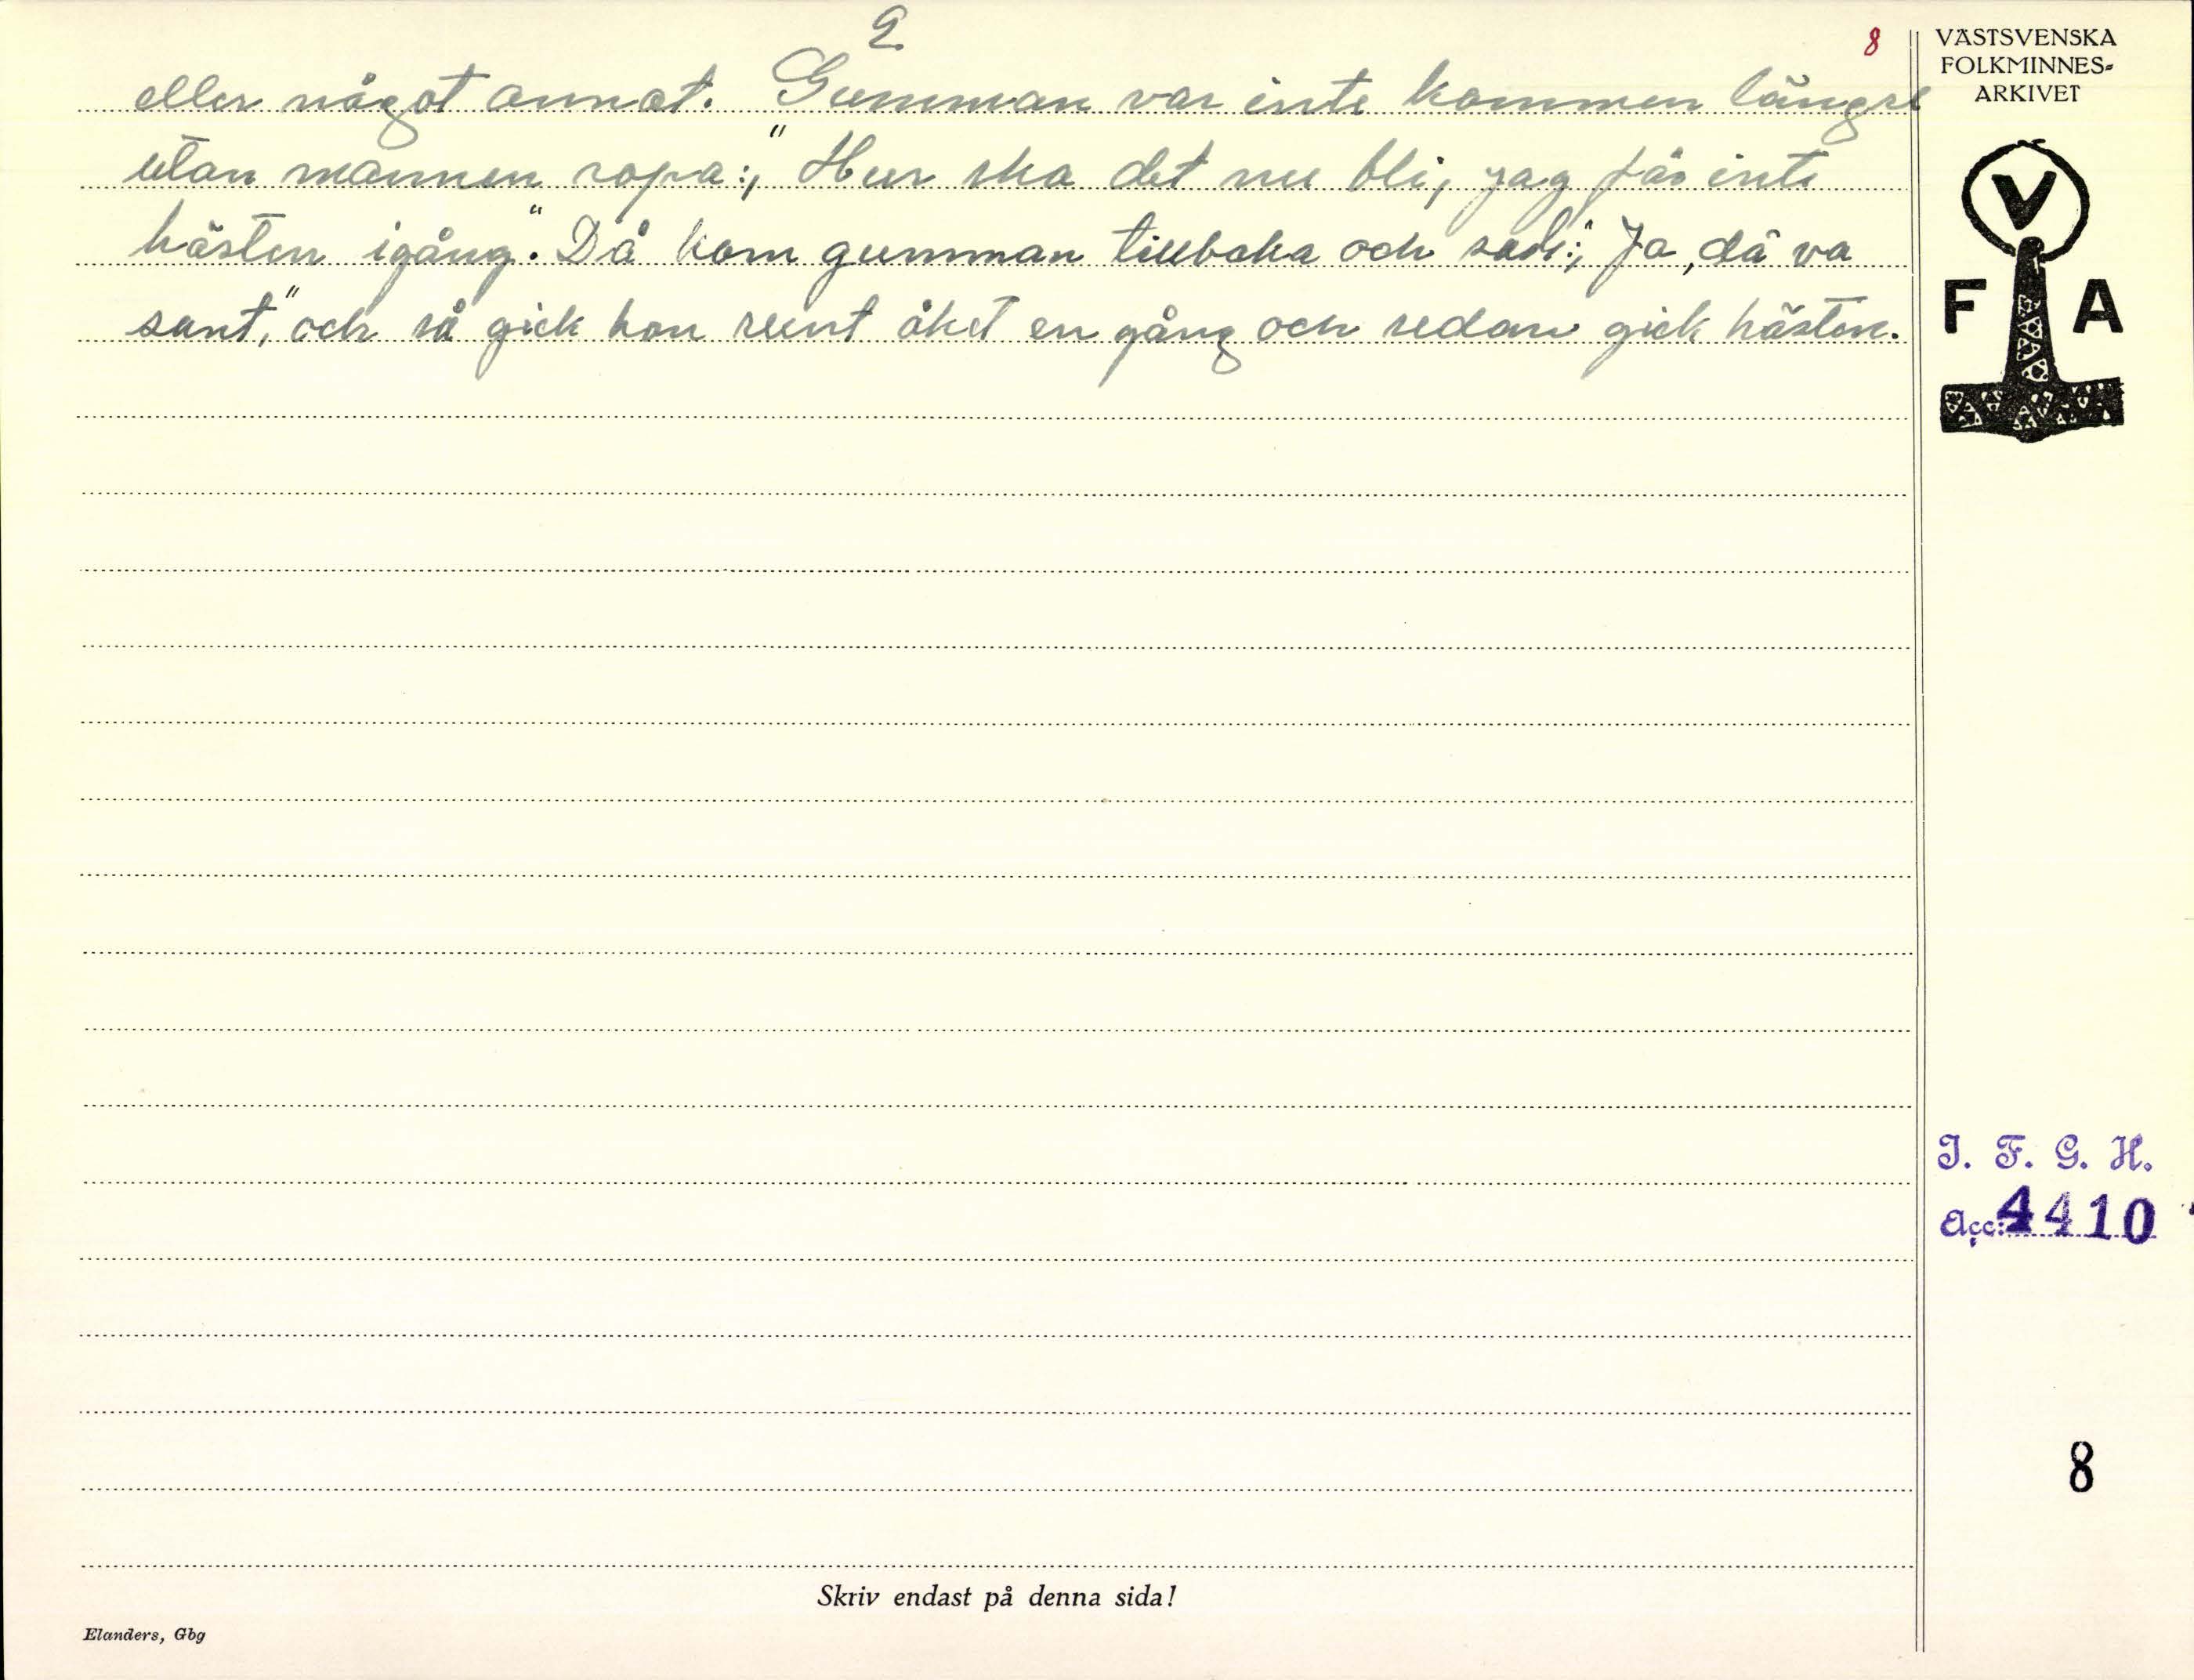 2.
8
eller något annat. Gumman var inte kommen längre
utan mannen ropa:„ Hur ska det nu bli, jag får inte
hästen igång". Då kom gumman tillbaka och sade:„ Ja, då va
sant," och så gick hon runt åket en gång och sedan gick hästen.
VÄSTSVENSKA
FOLKMINNES-
ARKIVET
V
F A
I. F. G. H.
Acc: 4410
8
Skriv endast på denna sida!
Elanders, Gbg